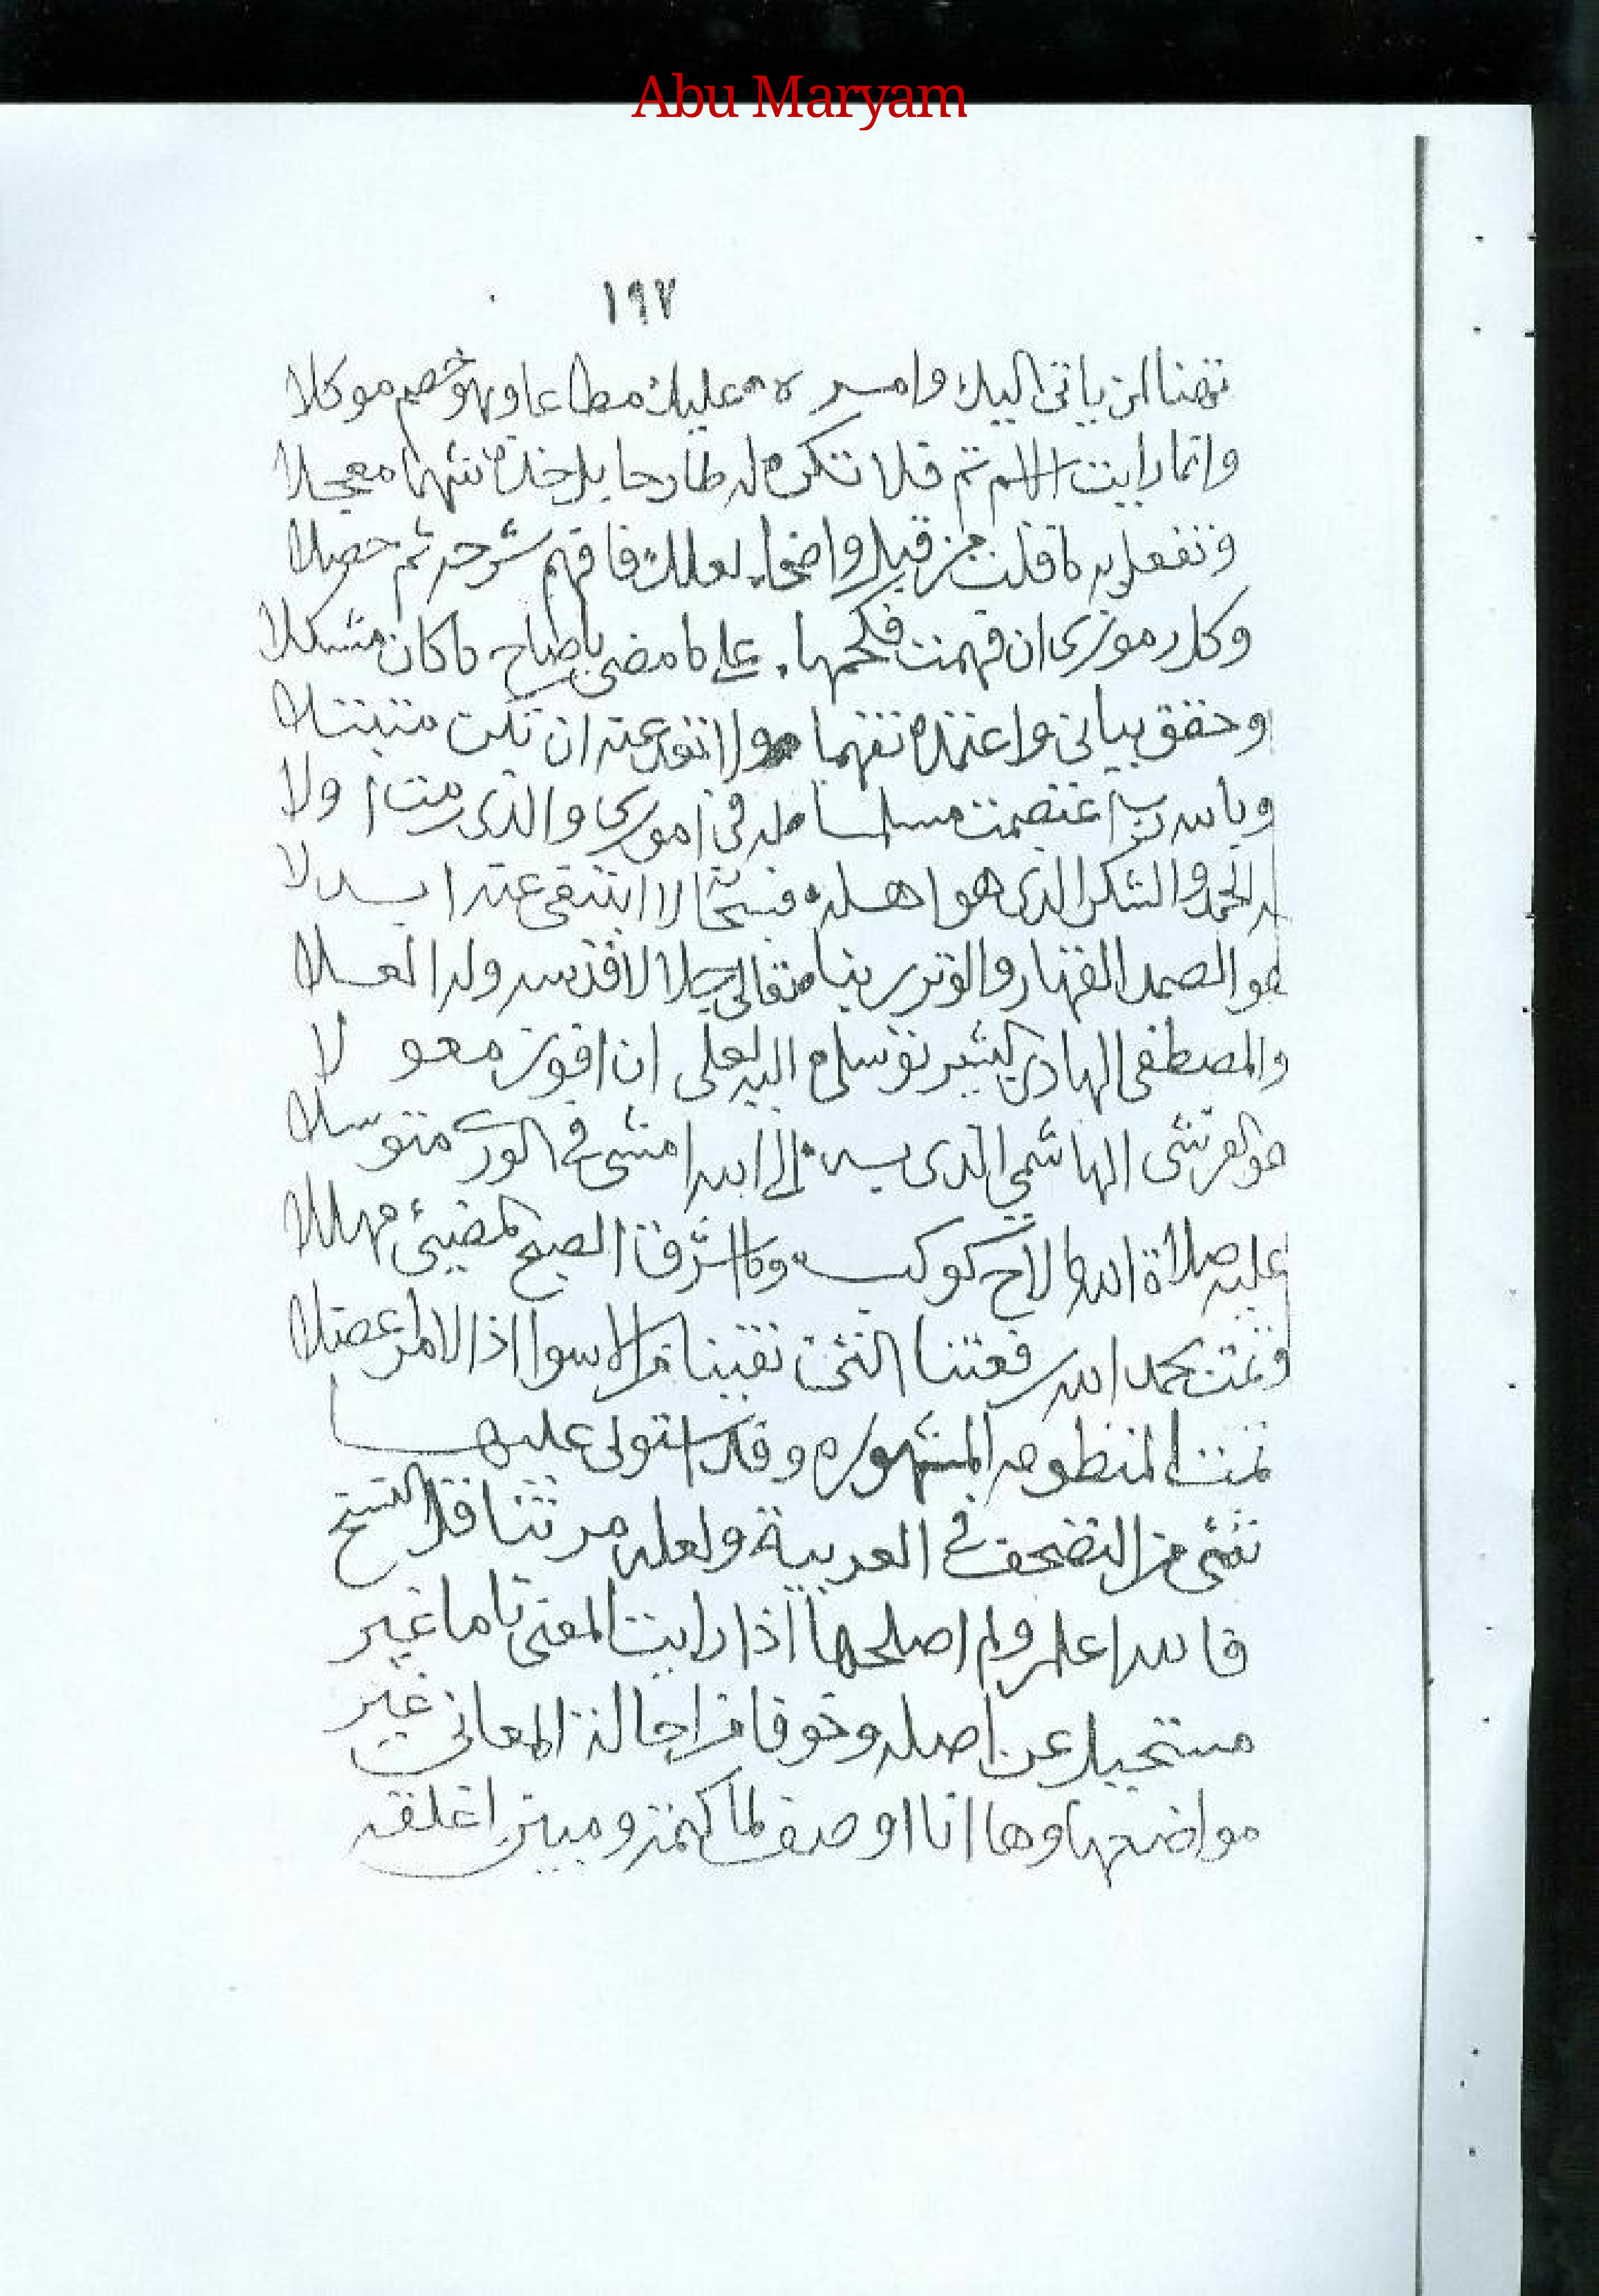 Abu Maryam
١٩٧
ياتى اليك وامره عليك مطاعا وهو خصم موكلا
وانما رايت الاسم تم فلا تكن له طارحا بل خذه معجلا
وتفعل به ما قلت من قبل واضحا لعلك فافهم شرحه ثم حصلا
وكل رموزى ان فهمت فكحمها على ما مضى باصاح ما كان مشكلا
وحقق بيانى واعتمده تفهما ولا عنه ان تكن متبتلا
وبالله ربى اعتصمت مسلما له فى امورى والذى رمت اولا
له الحمد والشكر الذى هو اهله لا ابتغى عنه ابدلا
هو الصمد القهار والوتر ربنا تعالى جلالا قدسه وله العلا
والمصطفى الهادى البشير توسلى اليه لعلى ان افوز معولا
هو القرشى الهاشمى الذى به الى الله امشى فى الورى متوسلا
عليه صلاة الله ما لاح كوكب وما اشرق الصبح المضيئ مهللا
وتمت بحمد الله التى تقينا من الاسوا اذا الامر عضلا
تمت المنظومه المشهوره وقد استولى عليها
شئ من التصحف فى العربية ولعله من تناقل النسخ
فالله اعلم ولم اصلحها اذا رايت المعنى تاما غير
مستحيل عن اصله وخوفا من احالة المعانى غير
مواضعها وها انا اوصف لما كتمته ومبين اغلقه